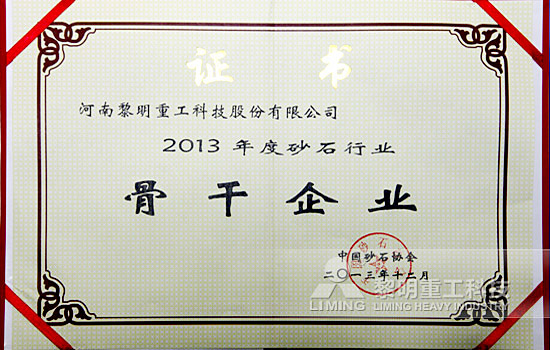 证 书
河南黎明重工科技股份有限公司
2013 年度砂石行业
骨干企业
中国砂石协会
二〇一三年十二月
黎明重工科技
LIMING HEAVY INDUSTRY
LIMING